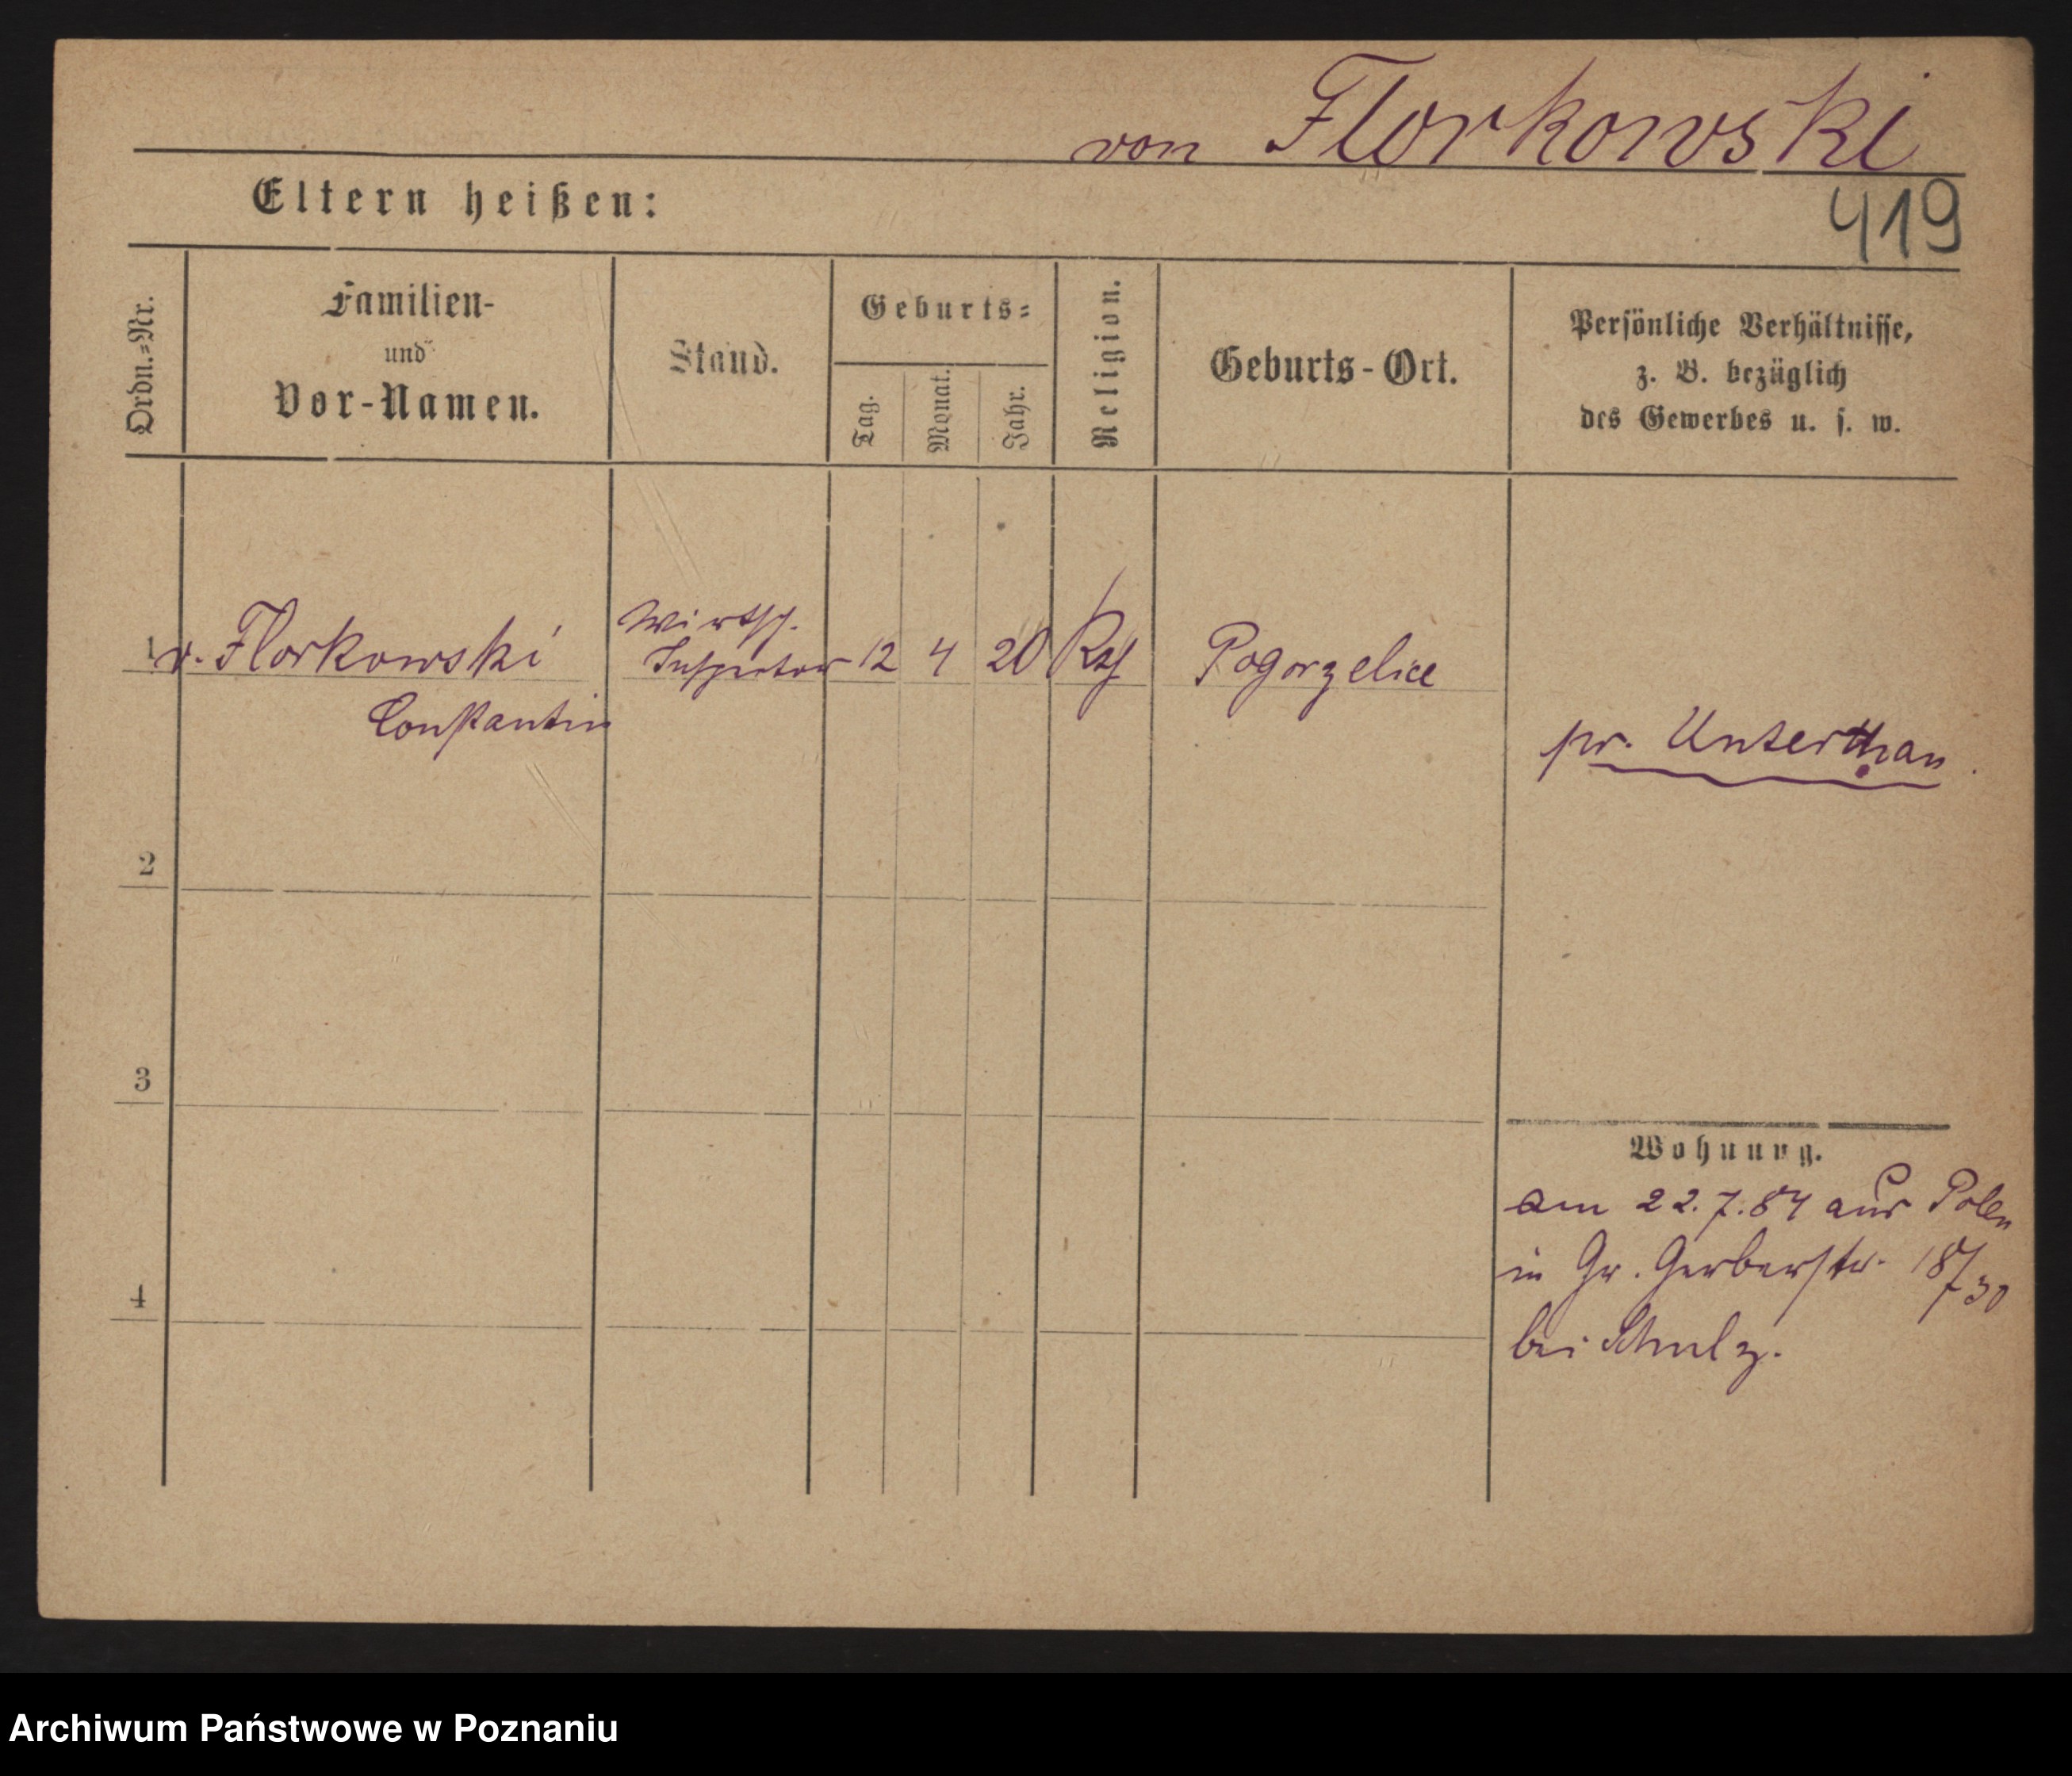 von Florkowski
Eltern heißen:
419
Ordn.=Nr.
Familien-
und
Vor-Namen.
Stand.
Geburts=
Tag.
Monat.
Jahr.
Religion.
Geburts-Ort.
Persönliche Verhältnisse,
z. B. bezüglich
des Gewerbes u. s. w.
1 v. Florkowski Wirtsch. Inspector 12 4 20 Kath Pogorzelice
Constantin
pr. Unterthan.
2
3
Wohnung.
am 22.7.84 aus Polen
in Gr. Gerberstr. 18/30
4
bei Schulz.
Archiwum Państwowe w Poznaniu